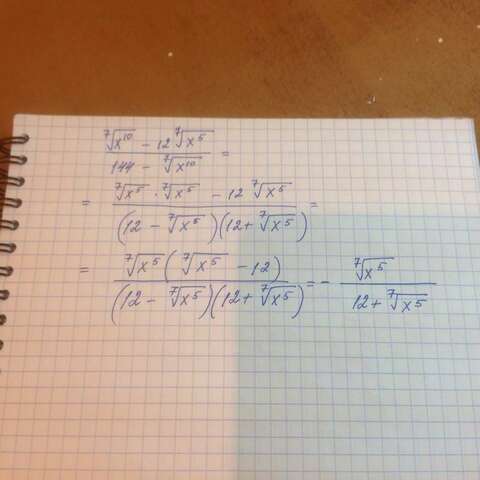 (⁷√x¹⁰ - 12 ⁷√x⁵) / (144 - ⁷√x¹⁰) =
= (⁷√x⁵ · ⁷√x⁵ - 12 ⁷√x⁵) / ((12 - ⁷√x⁵)(12 + ⁷√x⁵)) =
= (⁷√x⁵ (⁷√x⁵ - 12)) / ((12 - ⁷√x⁵)(12 + ⁷√x⁵)) = - ⁷√x⁵ / (12 + ⁷√x⁵)